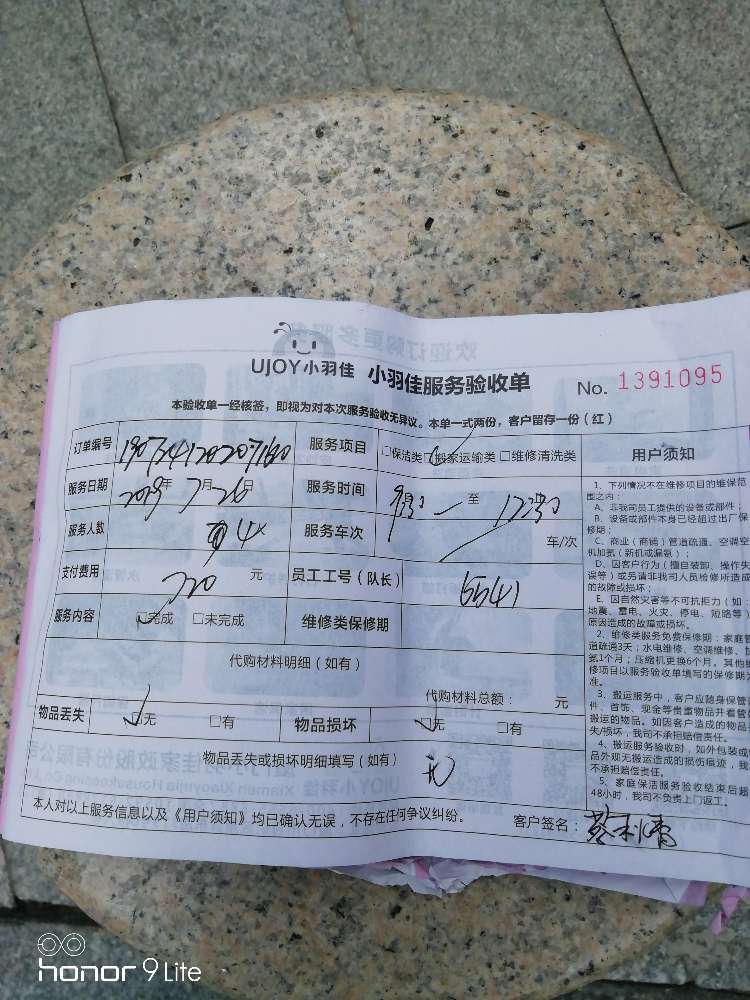 UJOY小羽佳 小羽佳服务验收单 No. 1391095
本验收单一经核签，即视为对本次服务验收无异议。本单一式两份，客户留存一份（红）
订单编号 服务项目 □保洁类□搬家运输类 □维修清洗类
服务日期 2019年 7月26日 服务时间 至
服务人数 4 服务车次 车/次
支付费用 720 元 员工工号（队长） 6541
服务内容 □完成 □未完成 维修类保修期
代购材料明细（如有）
代购材料总额： 元
物品丢失 □无 □有 物品损坏 □无 □有
物品丢失或损坏明细填写（如有）
无
本人对以上服务信息以及《用户须知》均已确认无误，不存在任何争议纠纷。 客户签名：
用户须知
1、下列情况不在维修项目的维保范
围之内：
A、非我司员工提供的设备或部件；
B、设备或部件本身已经超过出厂保
修期；
C、商业（商铺）管道疏通、空调空
机加氟（新机或漏氟）；
D、因客户行为（擅自装卸、操作失
误等）或另请非我司人员检修所造成
的故障或损坏；
E、因自然灾害等不可抗拒力（如：
地震、雷电、火灾、停电、短路等）
原因造成的故障或损坏。
2、维修类服务免费保修期：家庭管
道疏通3天；水电维修、空调维修、加
氟1个月；压缩机更换6个月，其他维
修项目以服务验收单填写的保修期为
准。
3、搬运服务中，客户应随身保管
件、首饰、现金等贵重物品并看管
搬运的物品。如因客户造成的物品
失/损坏，我司不承担赔偿责任。
4、搬运服务验收时，如外包装或
品外观无搬运造成的损伤痕迹，我
不承担赔偿责任。
5、家庭保洁服务验收结束后超
48小时，我司不负责上门返工。
honor 9 Lite